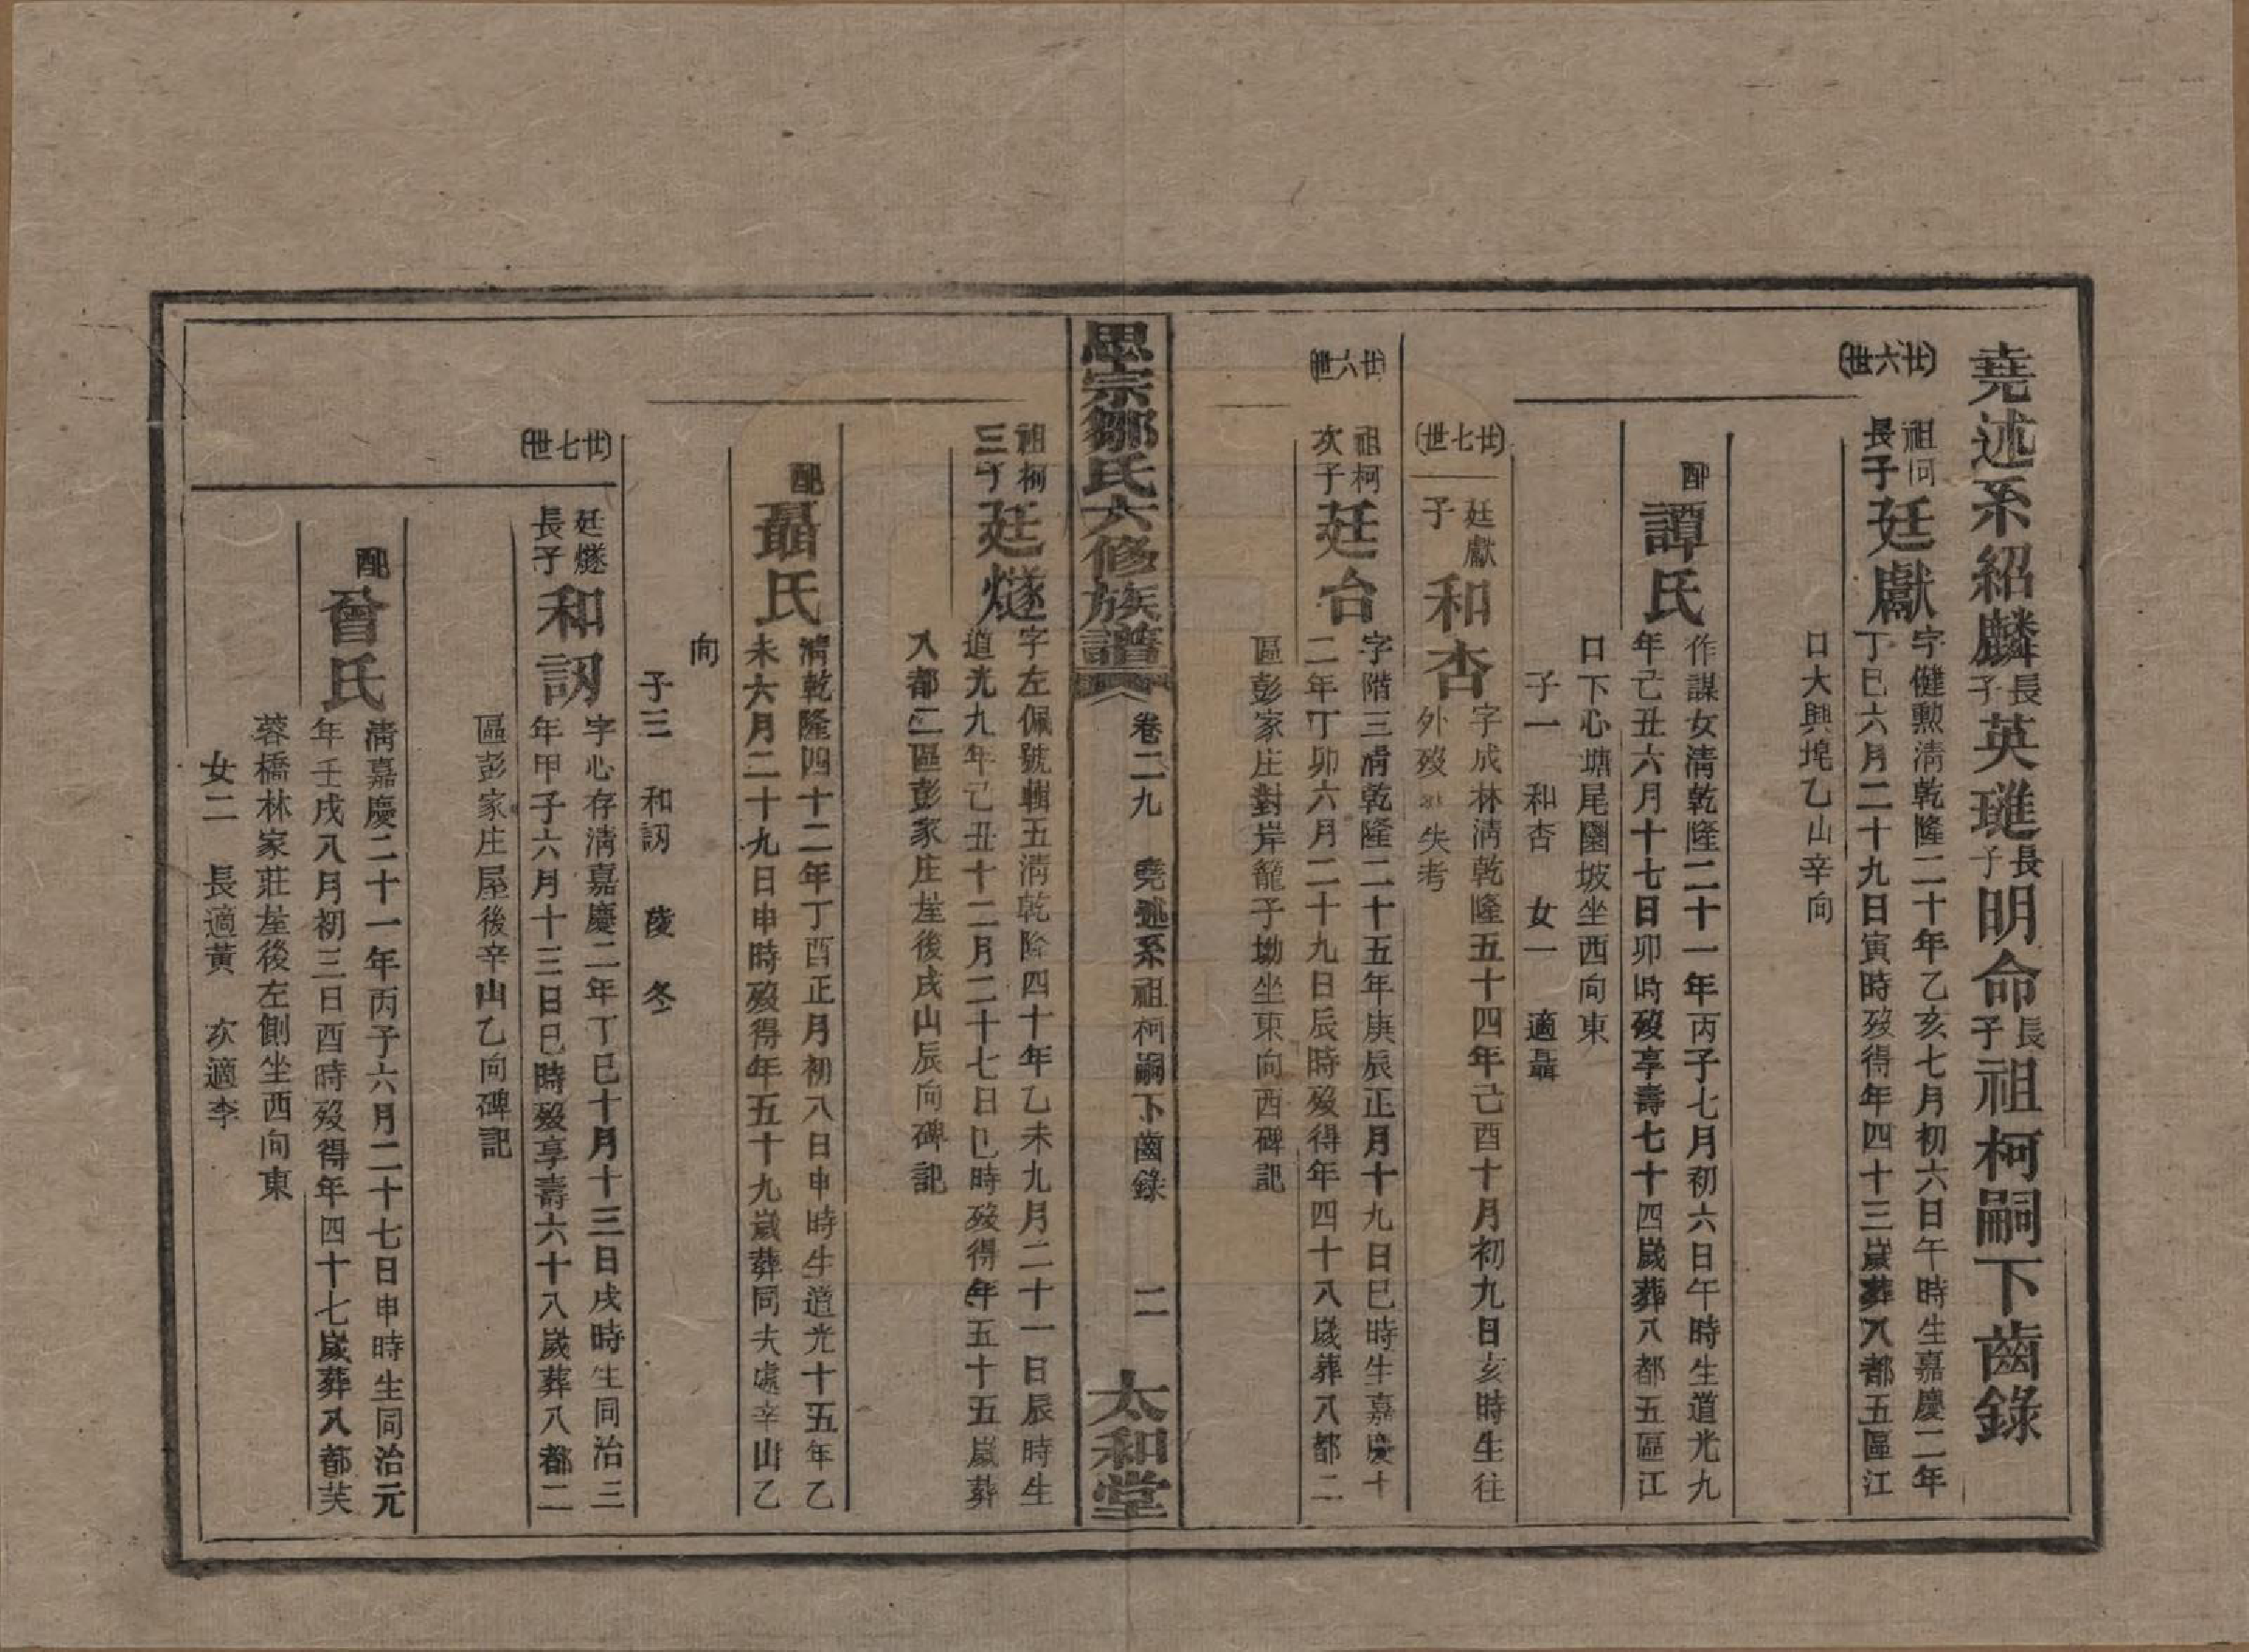 堯述系紹麟長子英璡長子明命長子祖柯嗣下齒錄
廿六世
祖柯長子
廷獻
字健勲淸乾隆二十年乙亥七月初六日午時生嘉慶二年
丁巳六月二十九日寅時歿得年四十三歲葬八都五區江
口大興垸乙山辛向
配
譚氏
作謀女淸乾隆二十一年丙子七月初六日午時生道光九
年己丑六月十七日卯時歿享壽七十四歲葬八都五區江
口下心塘尾園坡坐西向東
子一 和杏 女一 適聶
廿七世
廷獻子
和杏
字成林淸乾隆五十四年己酉十月初九日亥時生往
外歿葬失考
廿六世
祖柯次子
廷台
字階三淸乾隆二十五年庚辰正月十九日巳時生嘉慶十
二年丁卯六月二十九日辰時歿得年四十八歲葬八都二
區彭家庄對岸籠子坳坐東向西碑記
思宗鄒氏六修族譜
卷二九 堯述系祖柯嗣下齒錄 二
太和堂
祖柯三子
廷燧
字左佩號輯五淸乾隆四十年乙未九月二十一日辰時生
道光九年己丑十二月二十七日巳時歿得年五十五歲葬
八都二區彭家庄屋後戌山辰向碑記
配
聶氏
淸乾隆四十二年丁酉正月初八日申時生道光十五年乙
未六月二十九日申時歿得年五十九歲葬同夫處辛山乙
向
子三 和訒 陵 冬
廿七世
廷燧長子
和訒
字心存淸嘉慶二年丁巳十月十三日戌時生同治三
年甲子六月十三日巳時歿享壽六十八歲葬八都二
區彭家庄屋後辛山乙向碑記
配
曾氏
淸嘉慶二十一年丙子六月二十七日申時生同治元
年壬戌八月初三日酉時歿得年四十七歲葬八都芙
蓉橋林家莊屋後左側坐西向東
女二 長適黃 次適李